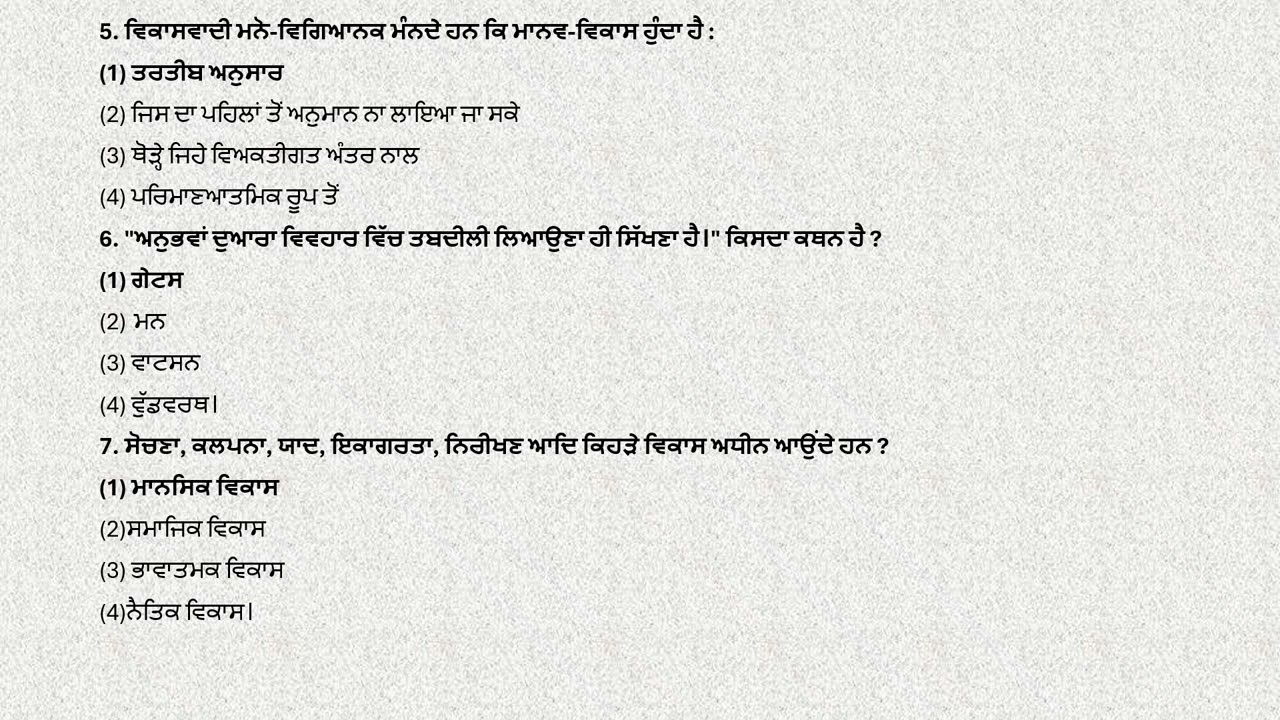 5. ਵਿਕਾਸਵਾਦੀ ਮਨੋ-ਵਿਗਿਆਨਕ ਮੰਨਦੇ ਹਨ ਕਿ ਮਾਨਵ-ਵਿਕਾਸ ਹੁੰਦਾ ਹੈ :
(1) ਤਰਤੀਬ ਅਨੁਸਾਰ
(2) ਜਿਸ ਦਾ ਪਹਿਲਾਂ ਤੋਂ ਅਨੁਮਾਨ ਨਾ ਲਾਇਆ ਜਾ ਸਕੇ
(3) ਥੋੜ੍ਹੇ ਜਿਹੇ ਵਿਅਕਤੀਗਤ ਅੰਤਰ ਨਾਲ
(4) ਪਰਿਮਾਣਆਤਮਿਕ ਰੂਪ ਤੋਂ
6. "ਅਨੁਭਵਾਂ ਦੁਆਰਾ ਵਿਵਹਾਰ ਵਿੱਚ ਤਬਦੀਲੀ ਲਿਆਉਣਾ ਹੀ ਸਿੱਖਣਾ ਹੈ।" ਕਿਸਦਾ ਕਥਨ ਹੈ ?
(1) ਗੇਟਸ
(2) ਮਨ
(3) ਵਾਟਸਨ
(4) ਵੁੱਡਵਰਥ।
7. ਸੋਚਣਾ, ਕਲਪਨਾ, ਯਾਦ, ਇਕਾਗਰਤਾ, ਨਿਰੀਖਣ ਆਦਿ ਕਿਹੜੇ ਵਿਕਾਸ ਅਧੀਨ ਆਉਂਦੇ ਹਨ ?
(1) ਮਾਨਸਿਕ ਵਿਕਾਸ
(2)ਸਮਾਜਿਕ ਵਿਕਾਸ
(3) ਭਾਵਾਤਮਕ ਵਿਕਾਸ
(4)ਨੈਤਿਕ ਵਿਕਾਸ।